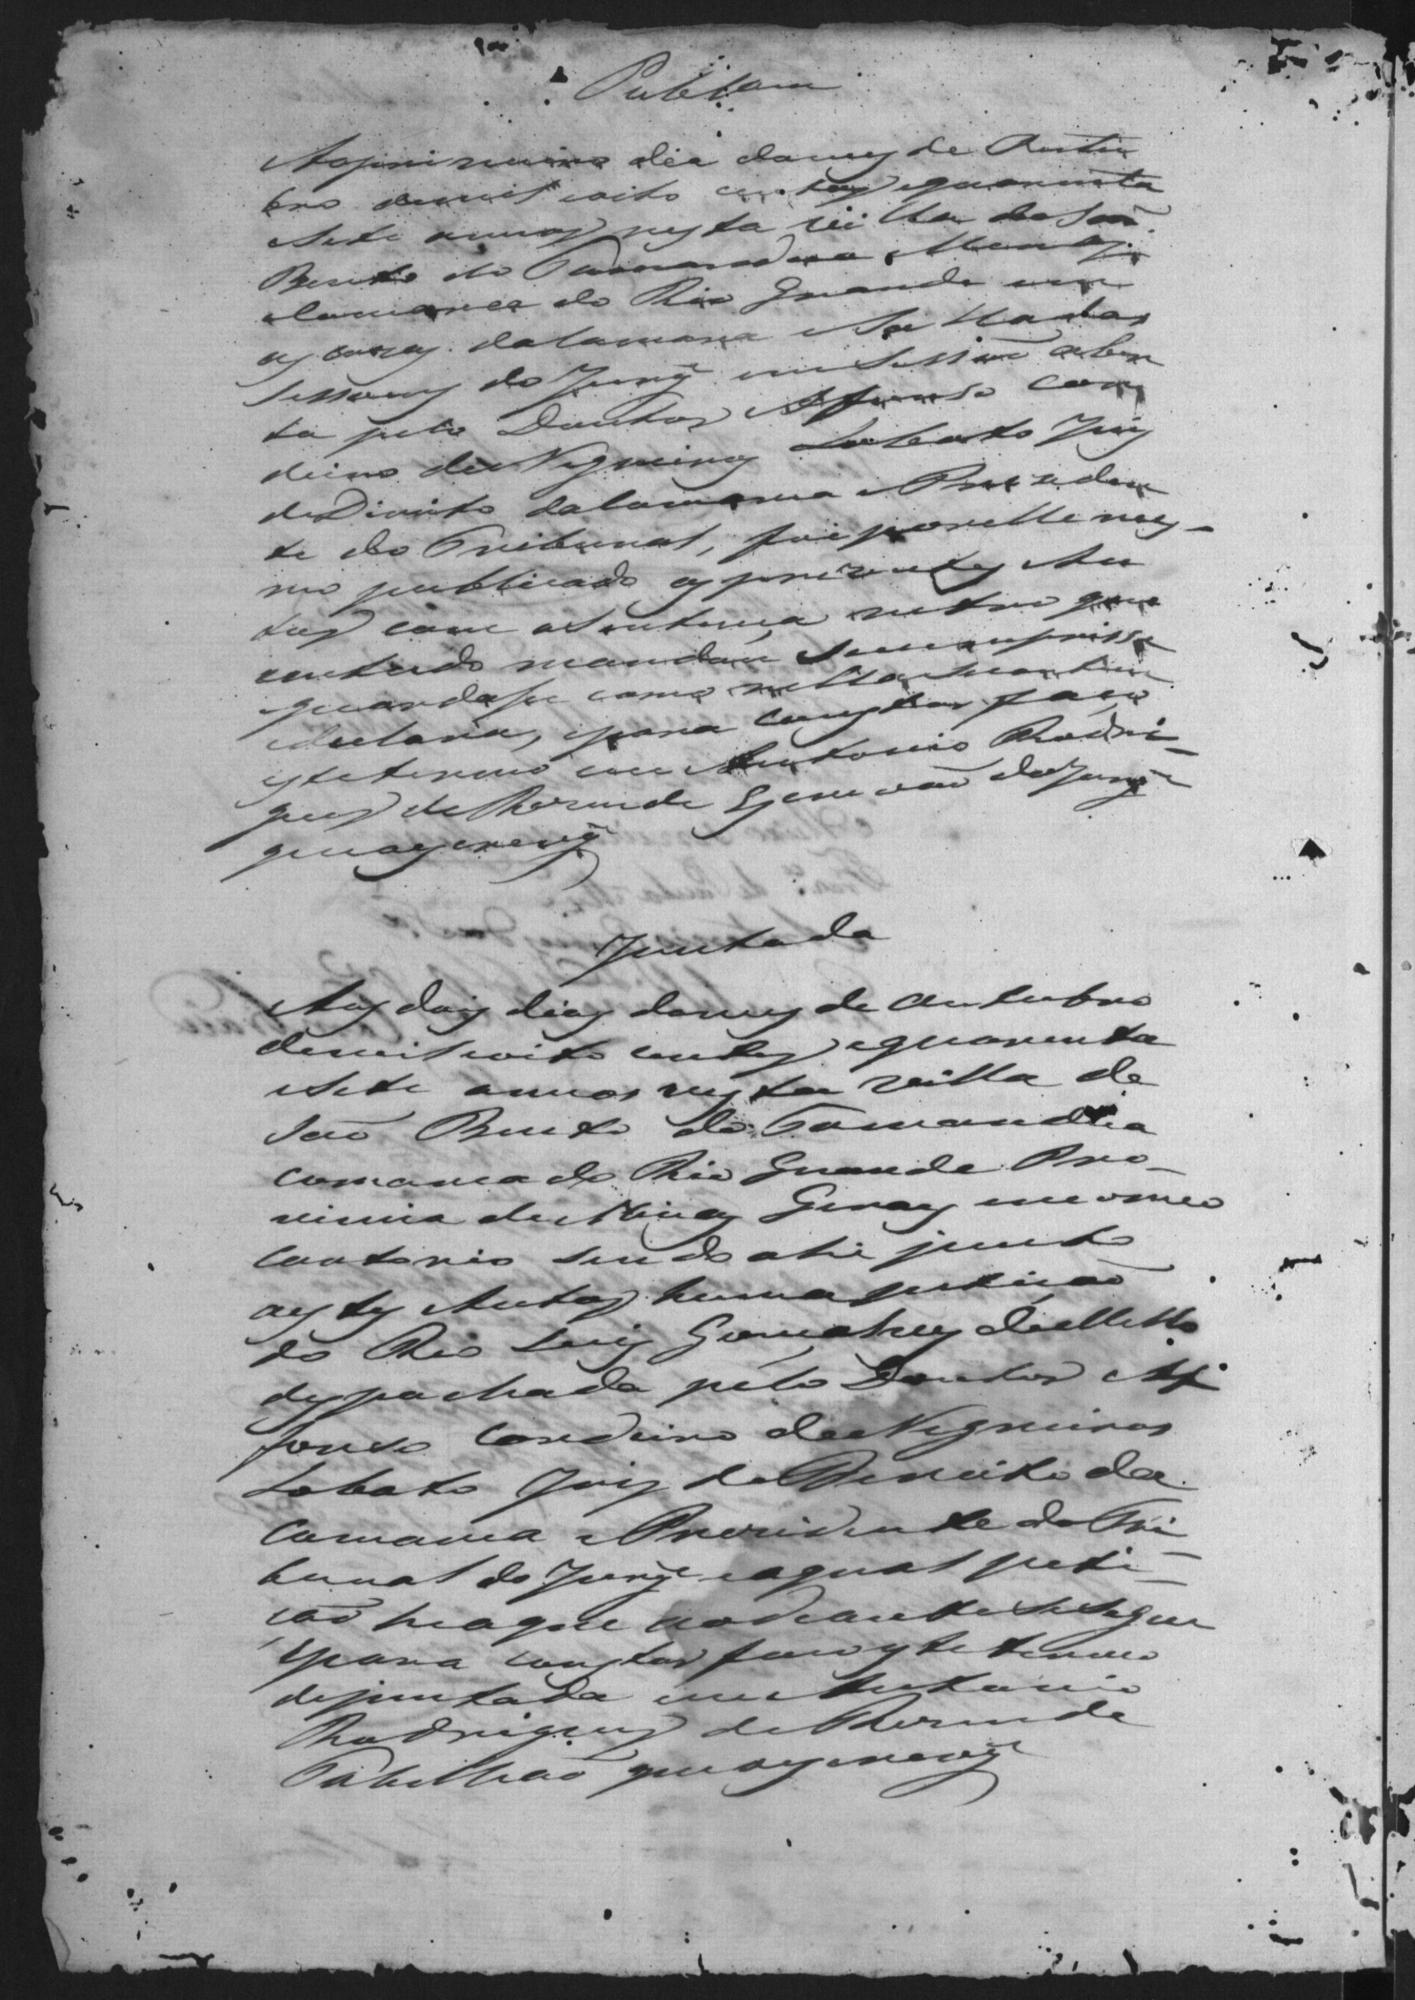 Publicam
Ao primeiro dia do mez de Outu
bro de mil oito centos e quarenta
e sete annos nesta villa de São
Bento do Tamandua Minas
comarca do Rio Grande em
as cazas da Camara e Salla das
Sessoens do Jury em Sessão aber
ta pelo Doutor Affonso Cor
deiro de Negreiros Lobato Juiz
de Direito da Comarca e Preziden
te do Tribunal, foi por elle mes-
mo publicado os prezentes Au
tos com a Sentença retro que
contendo mandou Se comprisse
guardasse como nella Se contem
e declara, e para constar faço
este termo eu Antonio Rodri-
gues de Rezende Escrivão do Jury
que o escrevy
Juntada
Aos dois dias do mez de Outubro
de mil oito centos e quarenta
e sete annos nesta villa de
São Bento do Tamandua
comarca do Rio Grande Pro-
vincia de Minas Geraes em o meo
Cartorio sendo ahi junto
a estes Autos huma petição
do Réo Luis Gonsalves de Mello
despachada pelo Doutor Af
fonso Cordeiro de Negreiros
Lobato Juiz de Direito da
Comarca e Prezidente do Tri
bunal do Jury e a qual peti-
ção he a que ao diante Se Segue
e para constar faço este termo
de juntada eu Antonio
Rodrigues de Rezende
Tabelliao que o escrevy